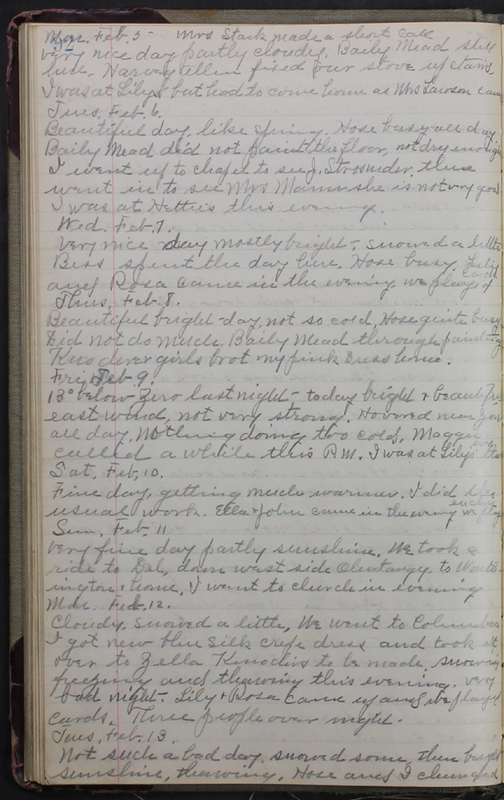 32
Mon. Feb. 5- Mrs Stark made a short call
very nice day partly cloudy. Baily Mead still
here. Harvey Allen fixed our stove up stairs
I was at Lilys but had to come home as Mrs Lawson came
Tues, Feb. 6.
Beautiful day, like spring. Hose busy all day
Baily Mead did not paint the floor, not dry enough
I went up to chapel to see J. Strosnider, then
went in to see Mrs Mann she is not very good
I was at Netties this evening.
Wed. Feb. 7.
Very nice day mostly bright - snowed a little
Bess spent the day here. Hose busy. Lily
and Rosa came in the evening we played cards
Thurs, Feb. 8.
Beautiful bright day, not so cold, Hose quite busy
Did not do much. Baily Mead through painting
girls brot my pink dress home.
Fri, Feb 9.
13° below zero last night - today bright & beautiful
east wind, not very strong.
all day. Nothing doing too cold, Maggie
called a while this P.M. I was at Lilys
Sat, Feb, 10.
Fine day, getting much warmer. I did
usual work. Ella & John came in the evening we
Sun, Feb. 11
Very fine day partly sunshine, We took a
ride to Del, down west side Olentangy to Worth-
ington & home, I went to church in evening
Mon. Feb. 12.
Cloudy, snowed a little, We went to Columbus
I got new blue silk crepe dress and took it
over to Zella to be made, snowing
freezing and thawing this evening. very
bad night. Lily & Rosa came up and we played
cards. Three people over night.
Tues, Feb. 13.
Not such a bad day, snowed some, then bright
sunshine, thawing. Hose and I cleaned